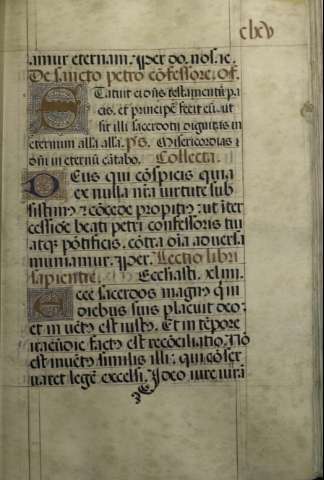 clxv
amur eternam. Per do. nos. ie.
De sancto petro cōfessore. Of.
Statuit ei dn̄s testamentū pa
cis. et principē fecit eū. ut
sit illi sacerdotii dignitas in
eternum alla alla. pš. Misericordias
dn̄i in eternū cātabo. Collecta.
Deus qui cōspicis quia
ex nulla nr̄a uirtute sub
sistimꝰ cōcede propitiꝰ ut īter
cessiōe beati petri confessoris tui
atqꝫ pōtificis. cōtra oīa aduersa
muniamur. Per. Lectio libri
sapientie. Ecclīasti. xliiii.
Ecce sacerdos magnꝰ qui
diebus suis placuit deo:
et in uētꝰ est iustꝰ. Et in tēpore
iracūdie factꝰ est recōciliatio. Nō
est inuētꝰ similis illi: qui cōser
uaret legē excelsi. Ideo iure iurā